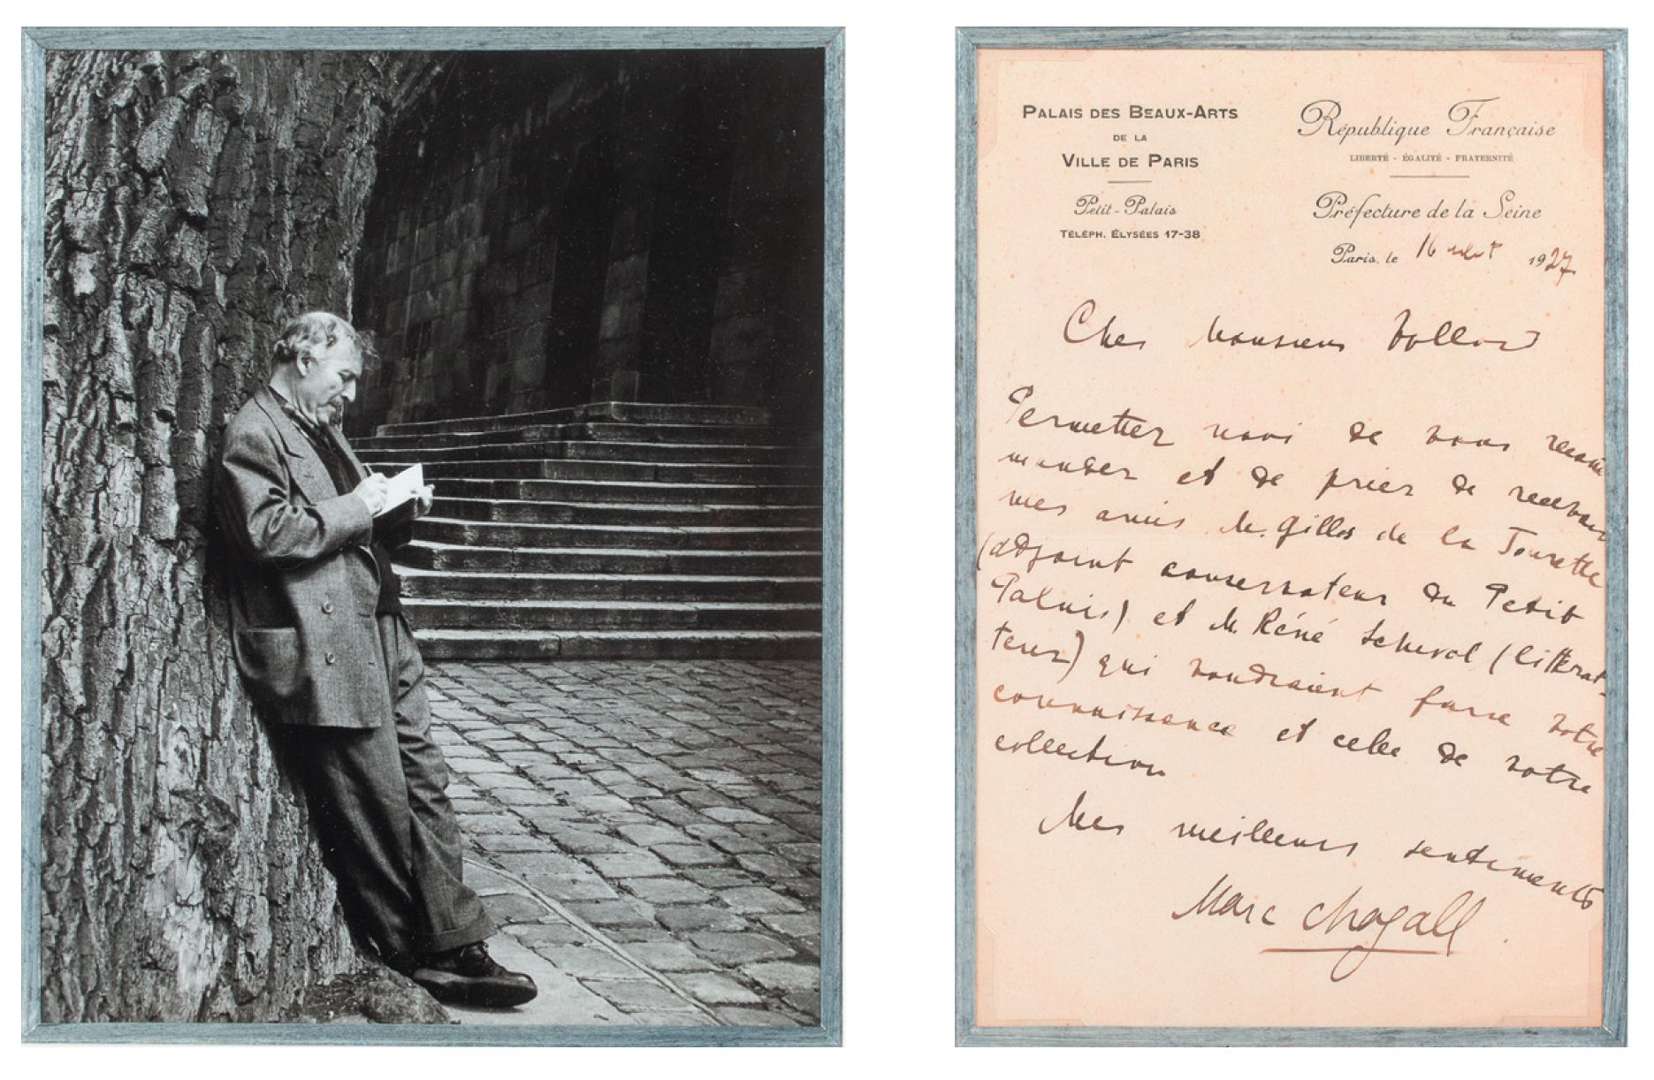 PALAIS DES BEAUX-ARTS
DE LA
VILLE DE PARIS
Petit-Palais
TÉLÉPH. ÉLYSÉES 17-38
République Française
LIBERTÉ - ÉGALITÉ - FRATERNITÉ
Préfecture de la Seine
Paris, le 16 1927
Cher Monsieur Vollard
Permettez moi de vous recom
mander et de prier de recevoir
mes amis M. Gilles de la Tourette
(adjoint conservateur du Petit
Palais) et M. Réné (littérat-
teur) qui voudraient faire votre
connaissance et celle de votre
collection
Mes meilleurs sentiments
Marc Chagall